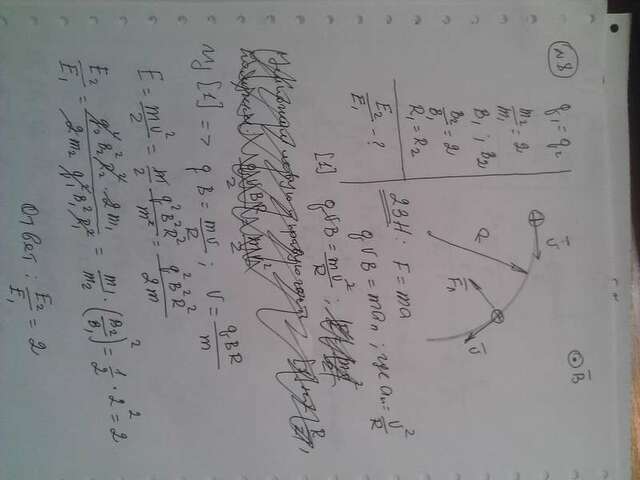 N8
q₁ = q₂
m₂/m₁ = 2
B₁; B₂
B₂/B₁ = 2
R₁ = R₂
E₂/E₁ - ?
V̄
R
F̄л
V̄
B̄
2ЗН: F = ma
qVB = maₙ; где aₙ = V²/R
[1] qVB = mV²/R;
Из [1] => qB = mV/R; V = qBR/m
E = mV²/2 = m q²B²R²/2 m² = q²B²R²/2m
E₂/E₁ = q₂² B₂² R₂² · 2m₁/2m₂ q₁² B₁² R₁² = m₁/m₂ · (B₂/B₁)² = 1/2 · 2² = 2
Ответ: E₂/E₁ = 2